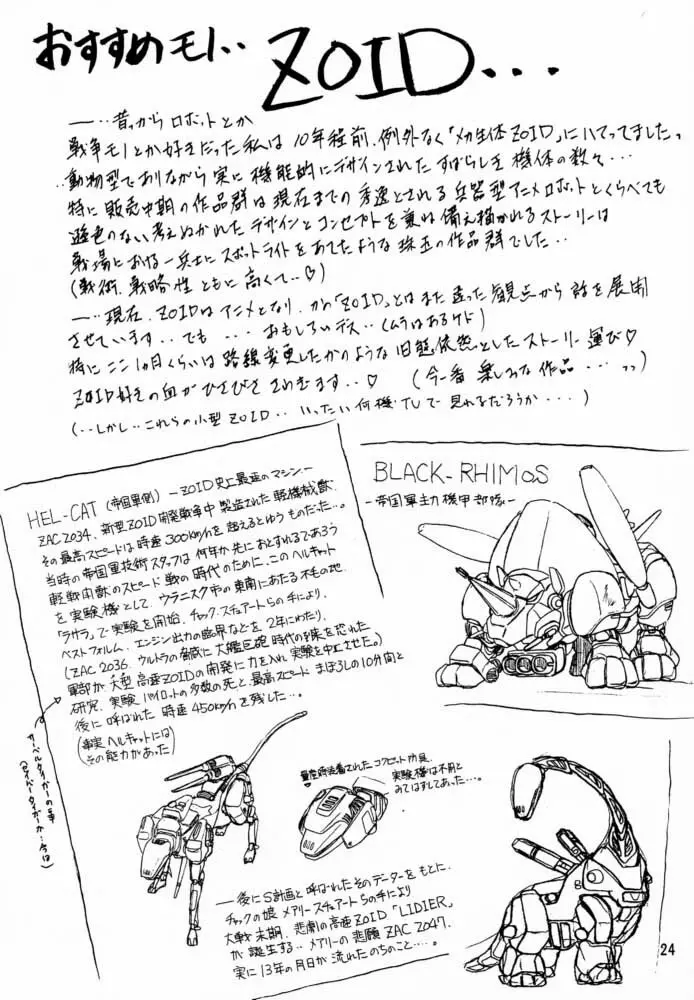 おすすめモノ‥ ZOID...
―‥昔っから ロボットとか
戦争モノとか好きだった私は 10年程前、例外なく「メカ生体ZOID」にハマってましたっ
‥動物型でありながら実に機能的にデザインされたすばらしき機体の数々…
特に販売中期の作品群は現在までの秀逸とされる兵器型アニメロボットとくらべても
遜色のない考えぬかれたデザインとコンセプトを兼ね備え描かれるストーリーは
戦場における一兵士にスポットライトをあてたような珠玉の作品群でした‥
(戦術、戦略性ともに高くて‥♡)
―‥現在、ZOIDはアニメとなり、かの「ZOID」とはまた違った観点から話を展開
させています‥でも … おもしろいデス‥(ムラはあるケド)
特にここ1ヵ月くらいは路線変更したかのような旧態依然としたストーリー運び♡
ZOID好きの血がひさびささわぎます‥♡ (今一番楽しみな作品…っっ)
(‥しかし‥これらの小型ZOID‥いったい何機TVで見れるだろうか‥‥)
HEL-CAT (帝国軍側) ―ZOID史上最速のマシン―
ZAC2034、新型ZOID開発戦争中製造された軽機械獣、
その最高スピードは時速300km/hを超えるとゆうものだった…。
当時の帝国軍技術スタッフは何年か先におとずれるであろう
軽戦闘獣のスピード戦の時代のために、このヘルキャット
を実験機として、ウラニスク市の東南にあたる不毛の地、
「ラサラ」で実験を開始、チャック・スチュアートらの手により、
ベストフォルム、エンジン出力の臨界などを、2年にわたり、
(ZAC 2036、ウルトラの脅威に大艦巨砲時代の到来を恐れた
軍部が、大型高速ZOIDの開発に力を入れ実験を中止させた。)
研究、実験パイロットの多数の死と、最高スピードまぼろしの10分間と
後に呼ばれた時速450km/hを残した…。
(事実ヘルキャットには
その能力があった)
サーベルタイガーの事
(セイバータイガーか…今は)
BLACK-RHIMOS
―帝国軍主力機甲部隊―
量産時装着されたコクピット防具、
実験機は不用と
みてはずしてあった…。
―後にS計画と呼ばれたそのデーターをもとに、
チャックの娘メアリースチュアートらの手により
大戦末期、悲劇の高速ZOID「LIDIER」
が誕生する‥メアリーの悲願ZAC2047、
実に13年の月日が流れたのちのこと….
24